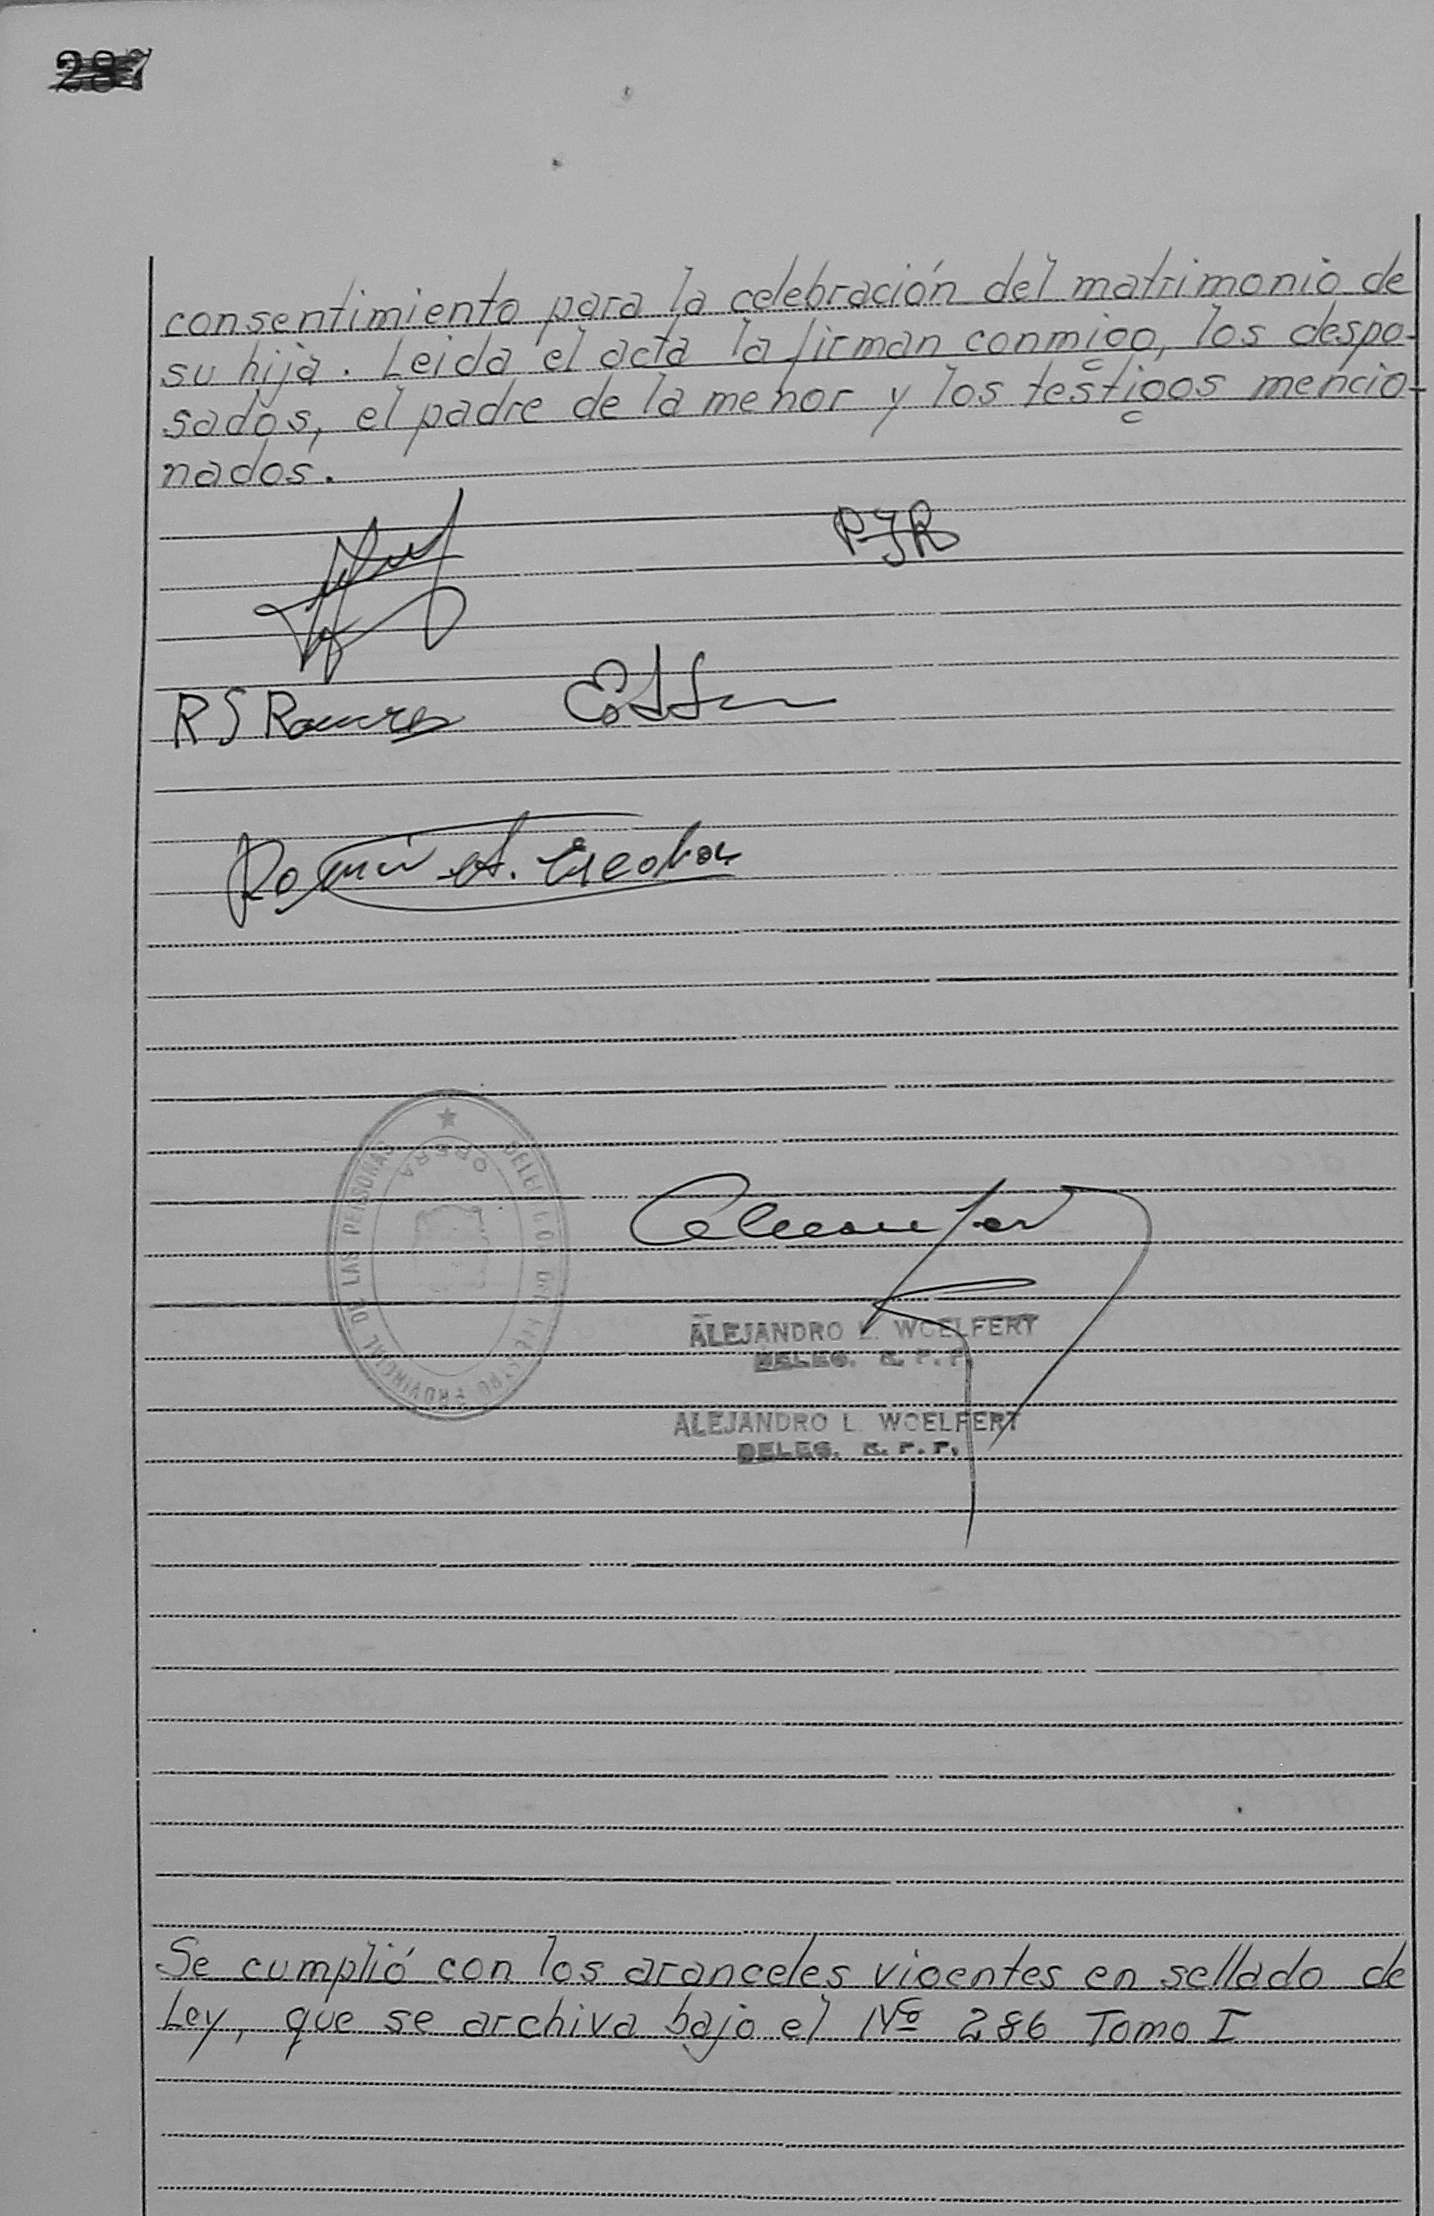 287
consentimiento para la celebración del matrimonio de
su hija. Leida el acta la firman conmigo, los despo-
sados, el padre de la menor y los testigos mencio-
nados.
PJR
R S Ramirez
A. Escobar
DELEGACION DEL REGISTRO PROVINCIAL DE LAS PERSONAS
OBERA
ALEJANDRO L. WOELFERT
DELEG. R. P. P.
ALEJANDRO L. WOELFERT
DELEG. R. P. P.
Se cumplió con los aranceles vigentes en sellado de
Ley, que se archiva bajo el Nº 286 Tomo I